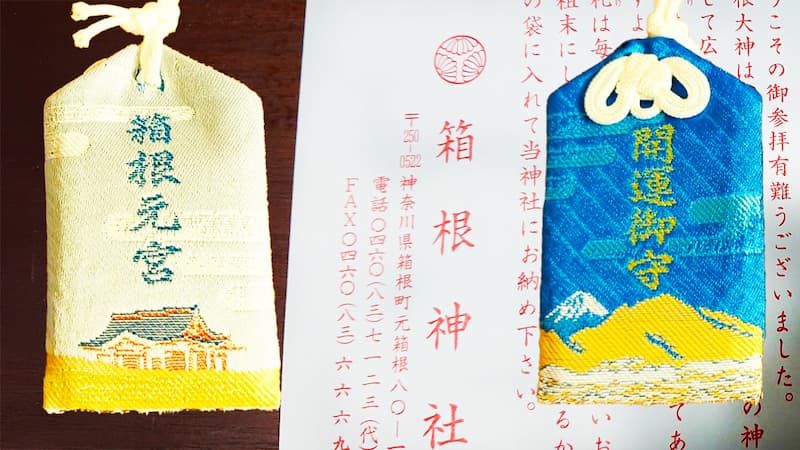 箱根元宮
〒250-0522 神奈川県箱根町元箱根八〇-一
電話〇四六〇(八三)七一二三(代)
FAX〇四六〇(八三)六六六九
箱根神社
開運御守
うこその御参拝有難うございました。
根大神は
して広
すよ
札は毎
粗末にし
の袋に入れて当神社にお納め下さい。
の神
てあ
いお
るか